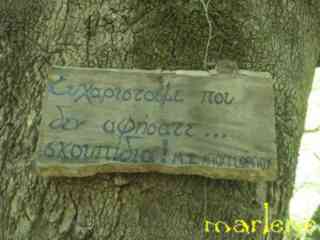 Ευχαριστούμε που
δεν αφήσατε ...
σκουπίδια!
marlene